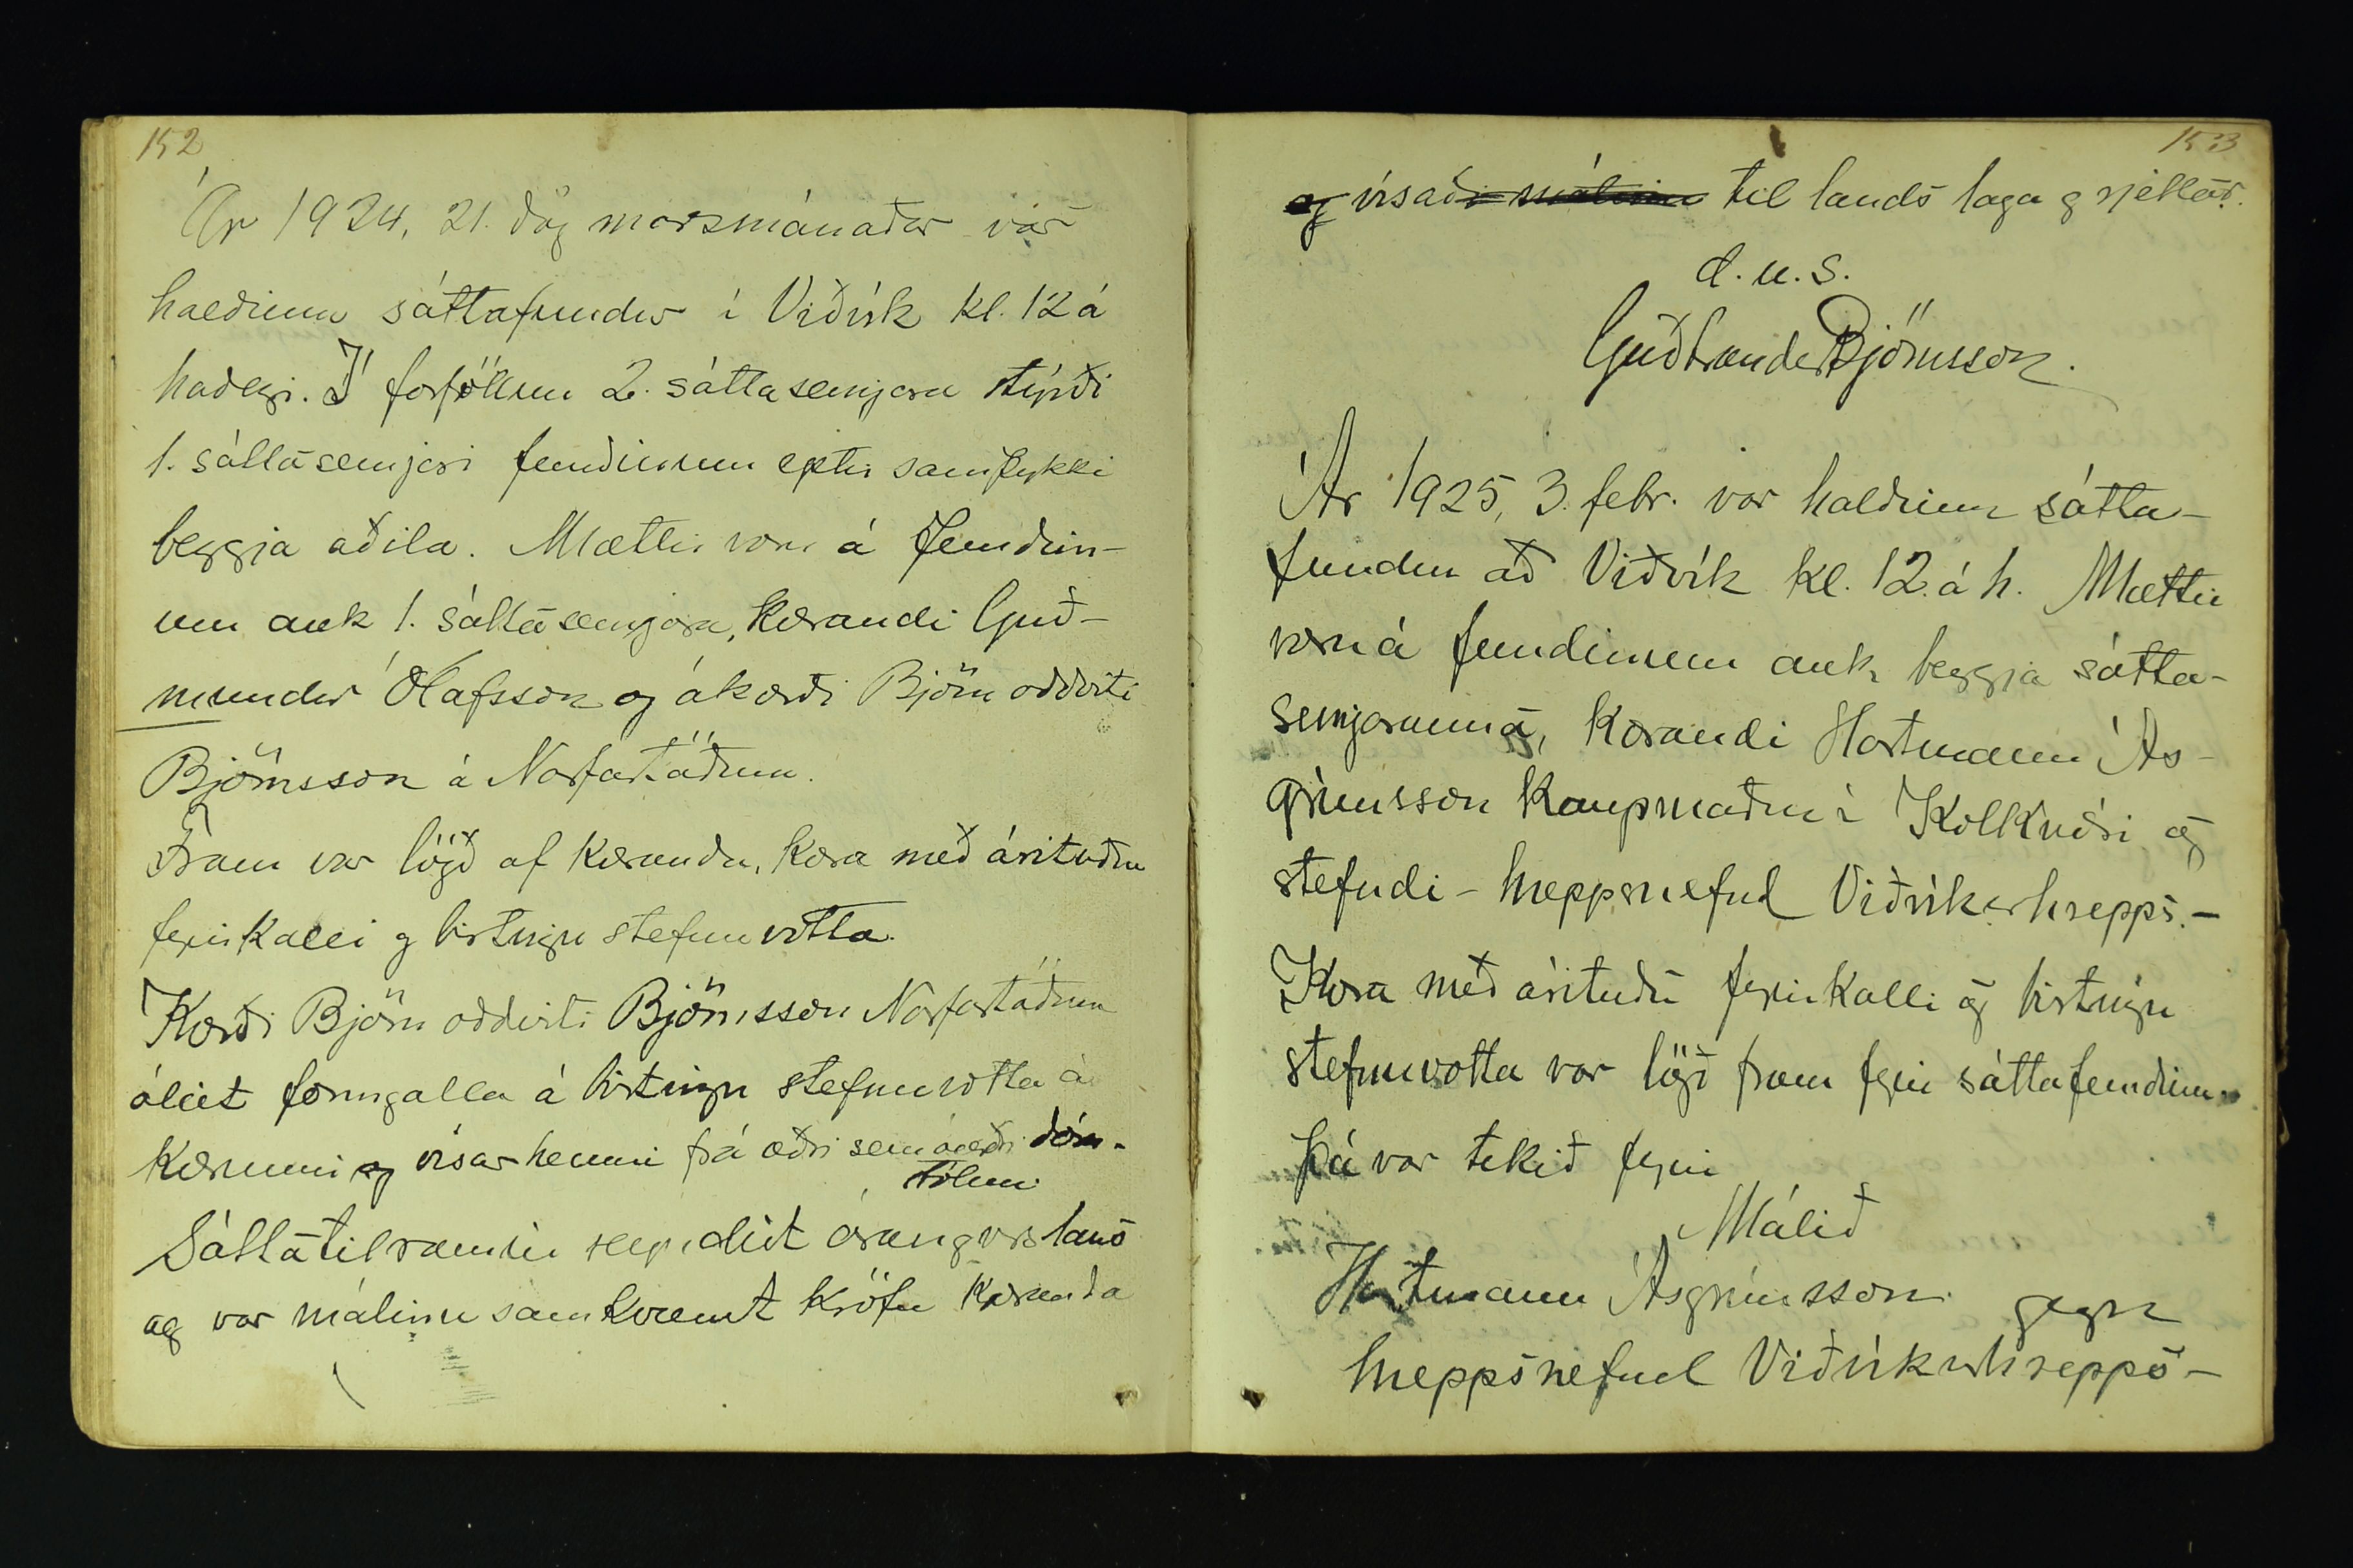 152
Ár 1924, 21. dag marsmánaðar var
haldinn sáttafundur í Viðvík kl. 12 á
hádegi. Í forföllum 2. sáttasemjara stýrði
1. sáttasemjari fundinum eptir samþykki
beggja aðila. Mættir voru á fundin-
um auk 1. sáttasemjara, kærandi Guð-
mundur Ólafsson og ákærði Björn oddviti
Björnsson á Narfastöðum.
Fram var lögð af kæranda, kæra með árituðu
fyrirkalli og birtingu stefnuvotta.
Kærði Björn oddviti Björnsson Narfastöðum
áleit formgalla á birtingu stefnuvotta á
kærunni og vísar henni frá æðri sem óæðri dóm-
stólum.
Sáttatilraunir árangurslaus
og var málinu samkvæmt kröfu kæranda
153
og vísað málinu til lands laga og rjettar.
d. u. s.
Guðbrandur Björnsson.
Ár 1925, 3. febr. var haldinn sátta-
fundur að Viðvík kl. 12 á h. Mættir
voru á fundinum auk beggja sátta-
semjaranna, kærandi Hartmann Ás-
grímsson kaupmaður í Kolkuósi og
stefndi - hreppsnefnd Viðvíkurhrepps. -
Kæra með árituðu fyrirkalli og birtingu
stefnuvotta var lögð fram fyrir sáttafundinn.
Þá var tekið fyrir
Málið
Hartmann Ásgrímsson gegn
hreppsnefnd Viðvíkurhrepps -